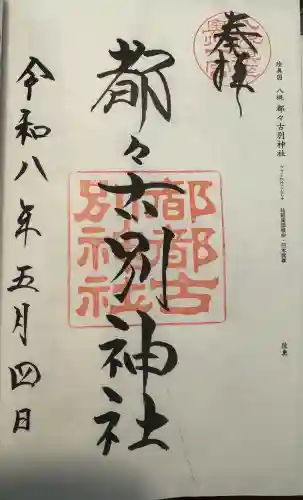 奉拝
陸奥国 八槻 都々古別神社
都々古別神社
都都古
別神社
令和八年五月四日